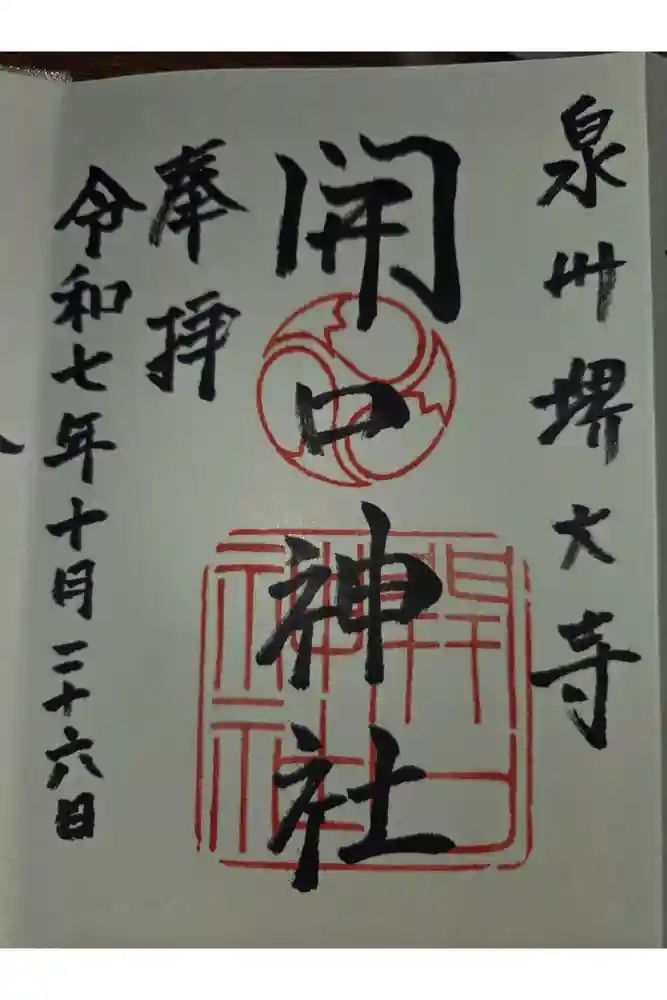 泉州堺大寺
開口神社
奉拝
令和七年十月二十六日
開口神社